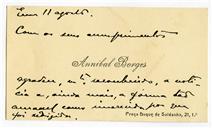 Em 11 agosto.
Com os seus cumprimentos
Annibal Borges
agradece, m.to reconhecido, a notícia
e, ainda mais, a forma tão
amavel como inserida por ven
foi redigida.
Praça Duque de Saldanha, 21, 1.º